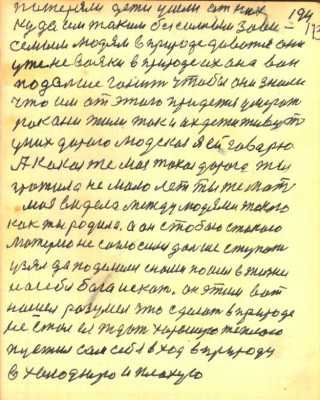 потеряли дети ушли от них 194
куда им таким бессильным зави-
семым людям в природе деватся они
уже не вояки в природе их она вон
подальше гонит чтобы они знали
что им от этого придется умирать
пока они жили так и их дети живут
у них дорога людская я ей говорю
А какая же моя такая дорога ты
прожила не мало лет ты же мать
моя видела между людями такого
как ты родила. а он с тобою с такою
матерью не согласился дальше ступать
узял да поделился с ними пошел в жизни
на себя бога искать. он этим вот
нашел разумел что сделать в природе
не стал ждать хорошую теплого
пустил сам себя в ход в природу
в холодную и плохую